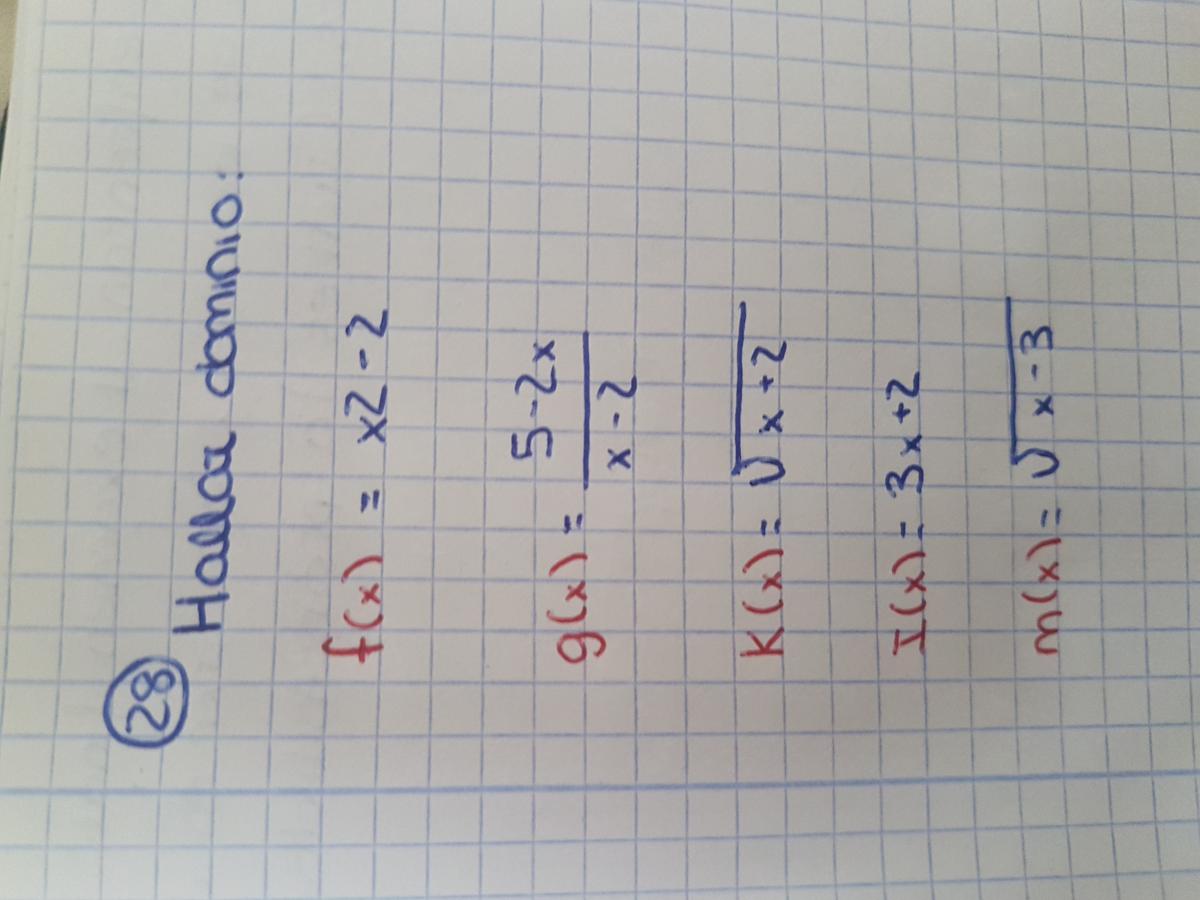 28 Hallar dominio:
f(x) = x2 - 2
g(x) = 5-2x
x-2
K(x) = √x+2
I(x) = 3x+2
m(x) = √x-3